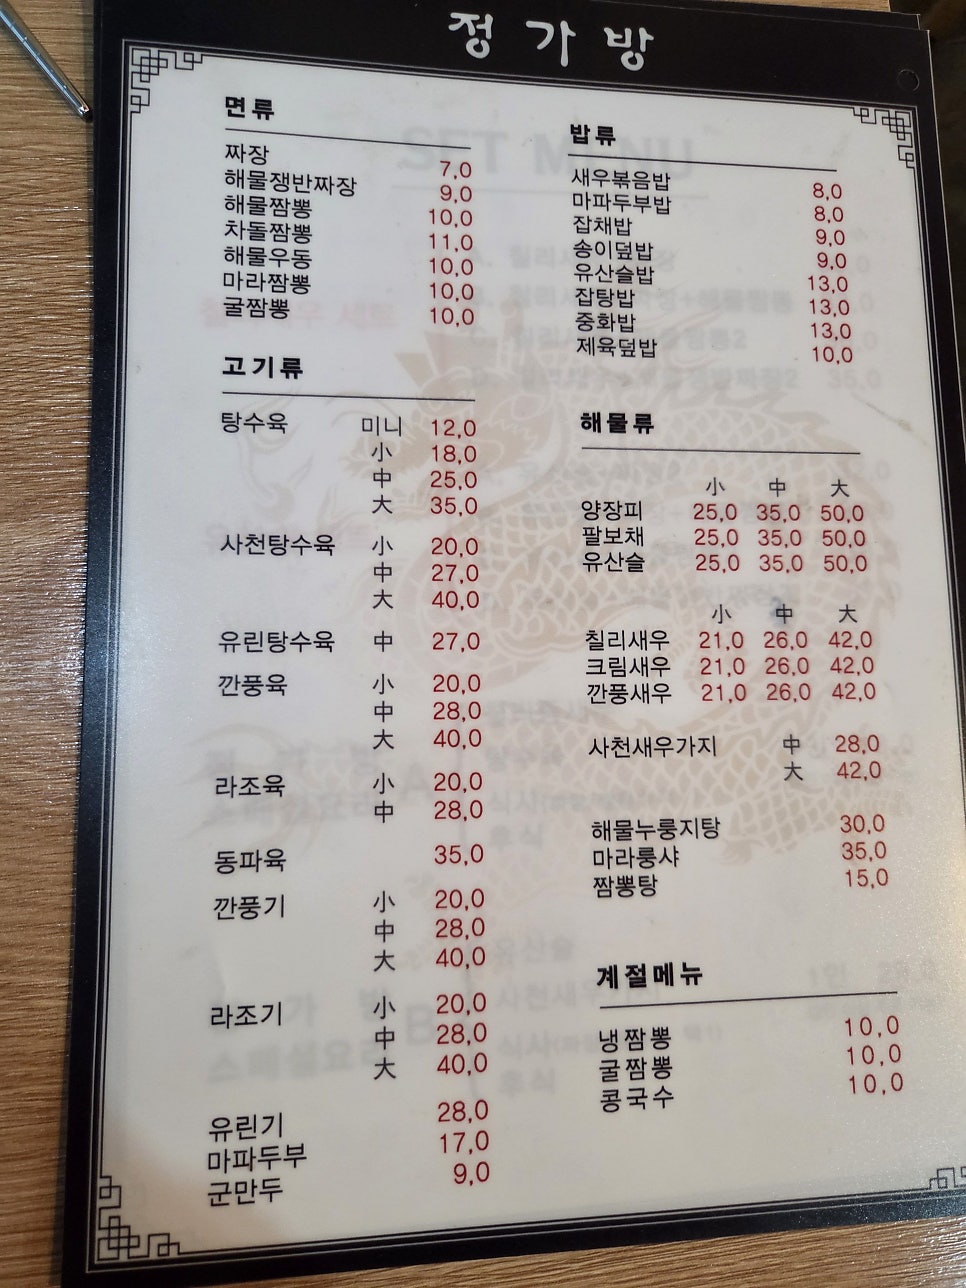 정가방
면류
짜장 7,0
해물쟁반짜장 9,0
해물짬뽕 10,0
차돌짬뽕 11,0
해물우동 10,0
마라짬뽕 10,0
굴짬뽕 10,0
고기류
탕수육 미니 12,0
小 18,0
中 25,0
大 35,0
사천탕수육 小 20,0
中 27,0
大 40,0
유린탕수육 中 27,0
깐풍육 小 20,0
中 28,0
大 40,0
라조육 小 20,0
中 28,0
동파육 35,0
깐풍기 小 20,0
中 28,0
大 40,0
라조기 小 20,0
中 28,0
大 40,0
유린기 28,0
마파두부 17,0
군만두 9,0
밥류
새우볶음밥 8,0
마파두부밥 8,0
잡채밥 9,0
송이덮밥 9,0
유산슬밥 13,0
잡탕밥 13,0
중화밥 13,0
제육덮밥 10,0
해물류
小 中 大
양장피 25,0 35,0 50,0
팔보채 25,0 35,0 50,0
유산슬 25,0 35,0 50,0
小 中 大
칠리새우 21,0 26,0 42,0
크림새우 21,0 26,0 42,0
깐풍새우 21,0 26,0 42,0
사천새우가지 中 28,0
大 42,0
해물누룽지탕 30,0
마라룽샤 35,0
짬뽕탕 15,0
계절메뉴
냉짬뽕 10,0
굴짬뽕 10,0
콩국수 10,0